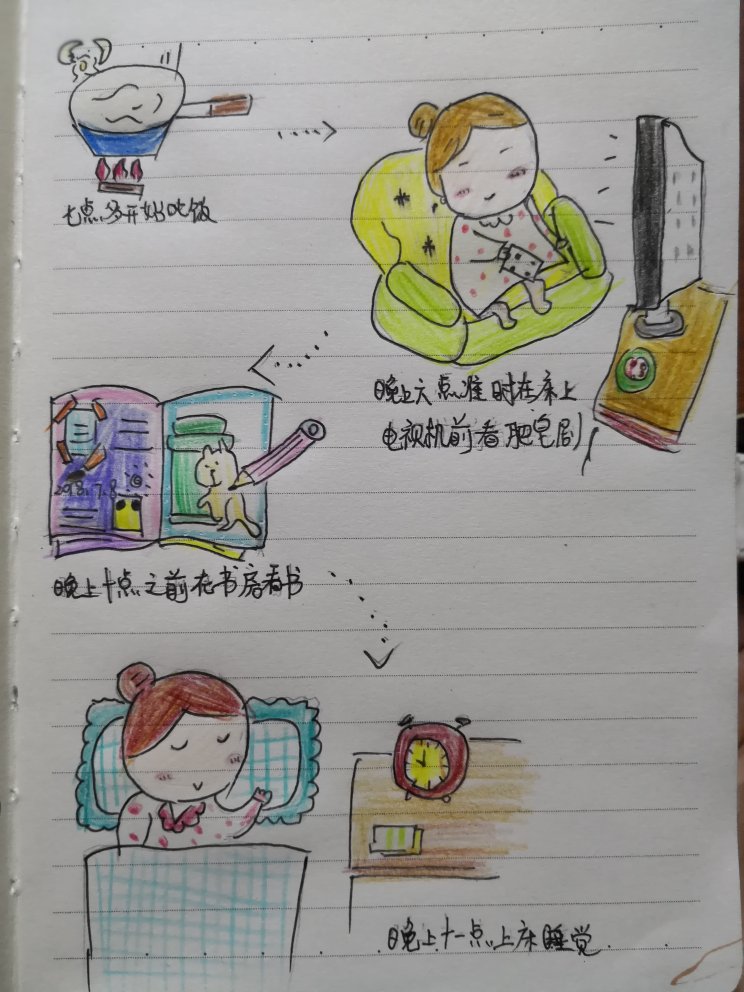 七点多开始吃饭
晚上六点准时在床上
电视机前看肥皂剧
2018.7.8
晚上十点之前在书房看书
晚上十一点上床睡觉